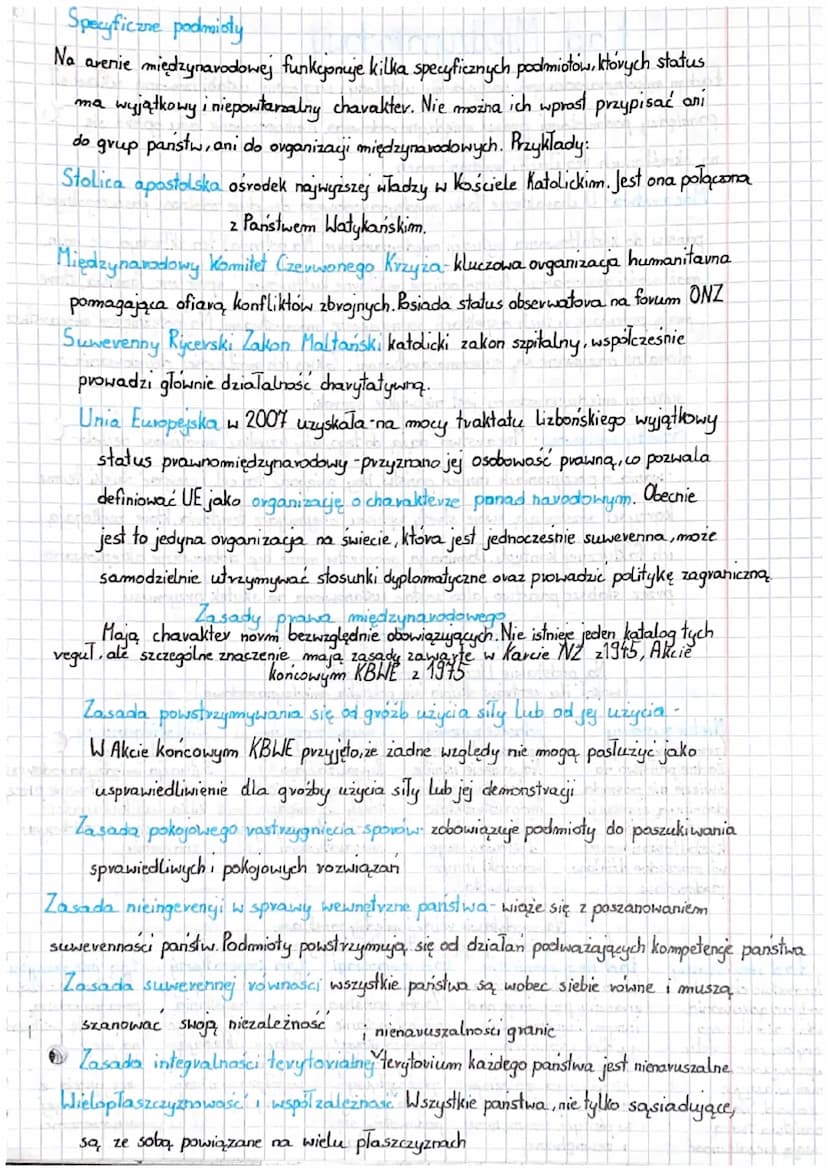 Specyficzne podmioty
Na arenie międzynarodowej funkcjonuje kilka specyficznych podmiotów, których status
ma wyjątkowy i niepowtarzalny charakter. Nie można ich wprost przypisać ani
do grup państw, ani do organizacji międzynarodowych. Przykłady:
Stolica apostolska ośrodek najwyższej władzy w Kościele Katolickim. Jest ona połączona
z Państwem Watykańskim.
Międzynarodowy Komitet Czerwonego Krzyża- kluczowa organizacja humanitarna
pomagająca ofiarą konfliktów zbrojnych. Posiada status obserwatora na forum ONZ
Suwerenny Rycerski Zakon Maltański katolicki zakon szpitalny, współcześnie
prowadzi głównie działalność charytatywną.
Unia Europejska w 2007 uzyskała na mocy traktatu Lizbońskiego wyjątkowy
status prawnomiędzynarodowy - przyznano jej osobowość prawną, co pozwala
definiować UE jako organizację o charakterze ponad narodowym. Obecnie
jest to jedyna organizacja na świecie, która jest jednocześnie suwerenna, może
samodzielnie utrzymywać stosunki dyplomatyczne oraz prowadzić politykę zagraniczną.
Zasady prawa międzynarodowego
Mają charakter norm bezwzględnie obowiązujących. Nie istnieje jeden katalog tych
reguł, ale szczególne znaczenie mają zasady zawarte w Karcie NZ z 1945, Akcie
końcowym KBWE z 1975
Zasada powstrzymywania się od gróźb użycia siły lub od jej użycia -
W Akcie końcowym KBWE przyjęto, że żadne względy nie mogą posłużyć jako
usprawiedliwienie dla groźby użycia siły lub jej demonstracji
Zasada pokojowego rastrzygnięcia sporów- zobowiązuje podmioty do poszukiwania
sprawiedliwych i pokojowych rozwiązań
Zasada nieingerencji w sprawy wewnętrzne państwa- wiąże się z poszanowaniem
suwerenności państw. Podmioty powstrzymują się od działań podważających kompetencje państwa
Zasada suwerennej równości wszystkie państwa są wobec siebie równe i muszą
szanować swoją niezależność
i nienaruszalności granic
Zasada integralności terytorialnej terytorium każdego państwa jest nienaruszalne
Wielopłaszczyznowość i współzależność Wszystkie państwa, nie tylko sąsiadujące,
są ze sobą powiązane na wielu płaszczyznach